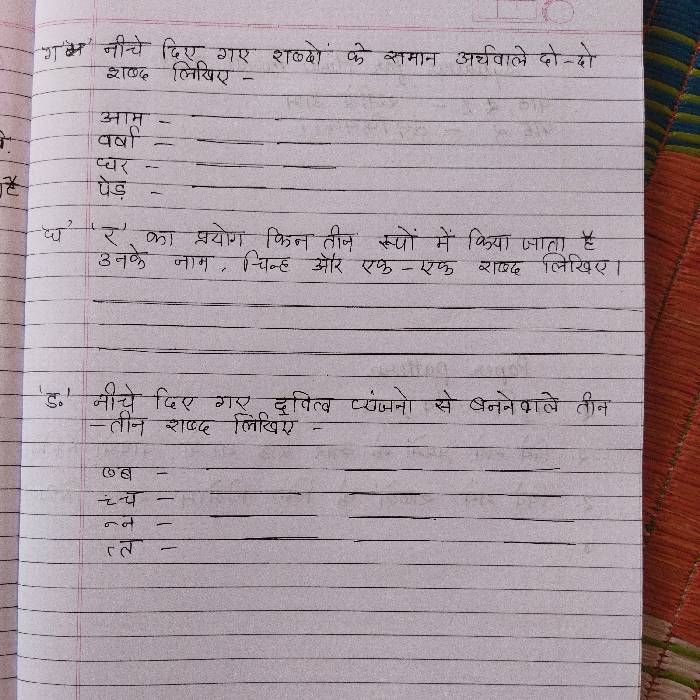 ग' नीचे दिए गए शब्दों के समान अर्थवाले दो-दो
शब्द लिखिए -
आम -
वर्षा -
घर -
पेड़ -
'घ' 'र' का प्रयोग किन तीन रूपों में किया जाता है
उनके नाम, चिन्ह और एक-एक शब्द लिखिए।
'ङ' नीचे दिए गए द्वित्व व्यंजनो से बननेवाले तीन
-तीन शब्द लिखिए -
ब्ब -
च्च -
न्न -
त्त -